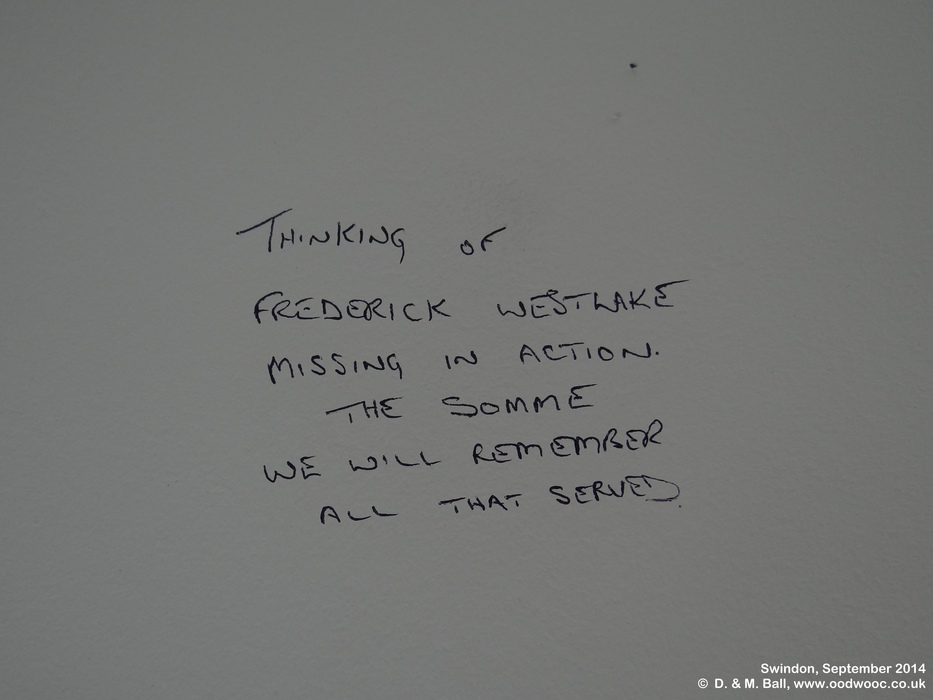 THINKING OF
FREDERICK WESTLAKE
MISSING IN ACTION.
THE SOMME
WE WILL REMEMBER
ALL THAT SERVED.
Swindon, September 2014
© D. & M. Ball, www.oodwooc.co.uk